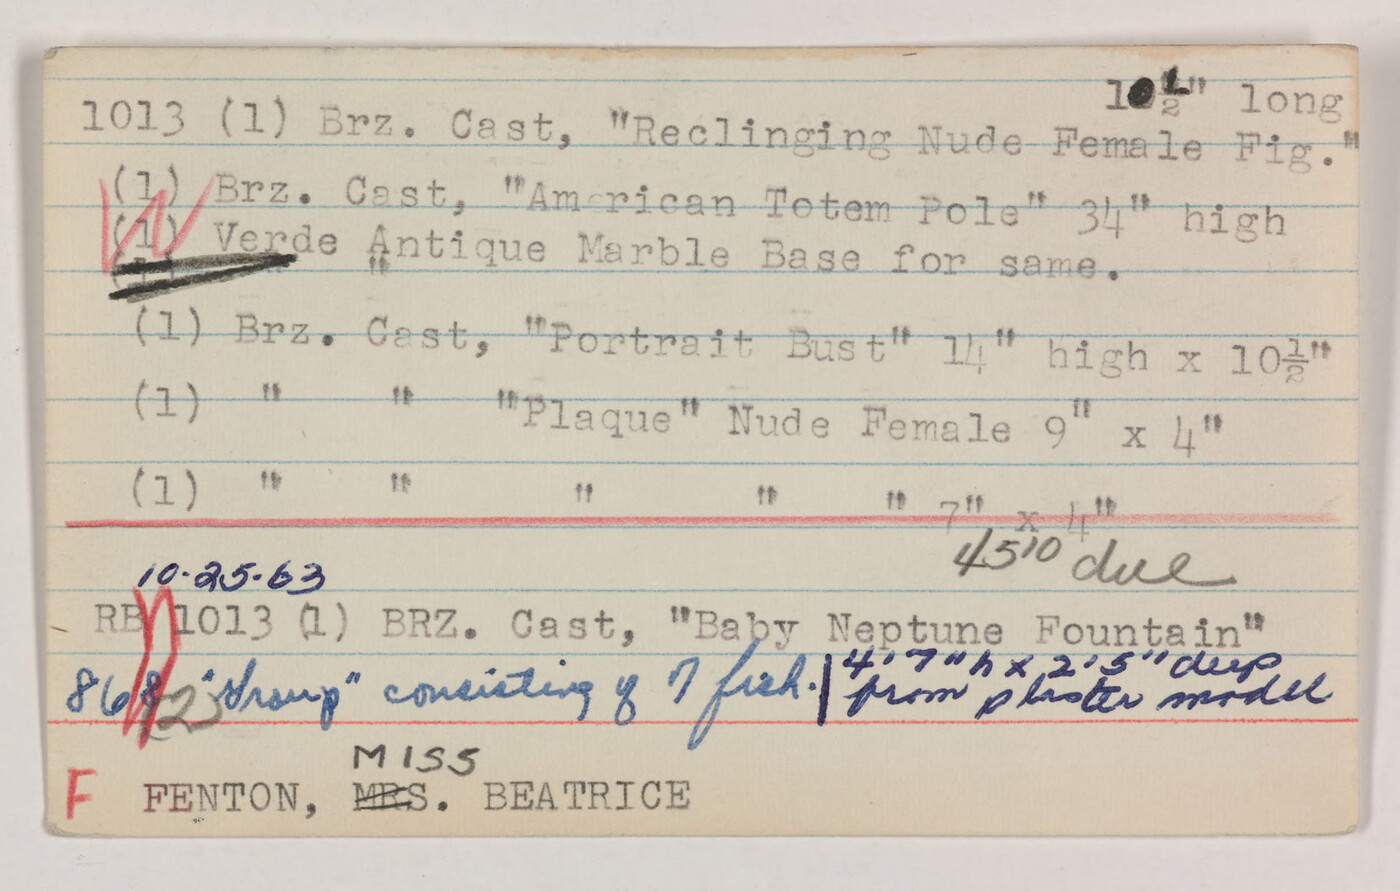 10½" long
1013 (1) Brz. Cast, "Reclinging Nude Female Fig."
(1) Brz. Cast, "American Totem Pole" 34" high
(1) Verde Antique Marble Base for same.
(1) Brz. Cast, "Portrait Bust" 14" high x 10½"
(1) " " "Plaque" Nude Female 9" x 4"
(1) " " " " " 7" x 4"
45¹⁰ due
10-25-63
RB 1013 (1) BRZ. Cast, "Baby Neptune Fountain"
"Group" consisting of 7 fish. | 4'7"h x 2'5" deep
from plaster model
MISS
F FENTON, MRS. BEATRICE